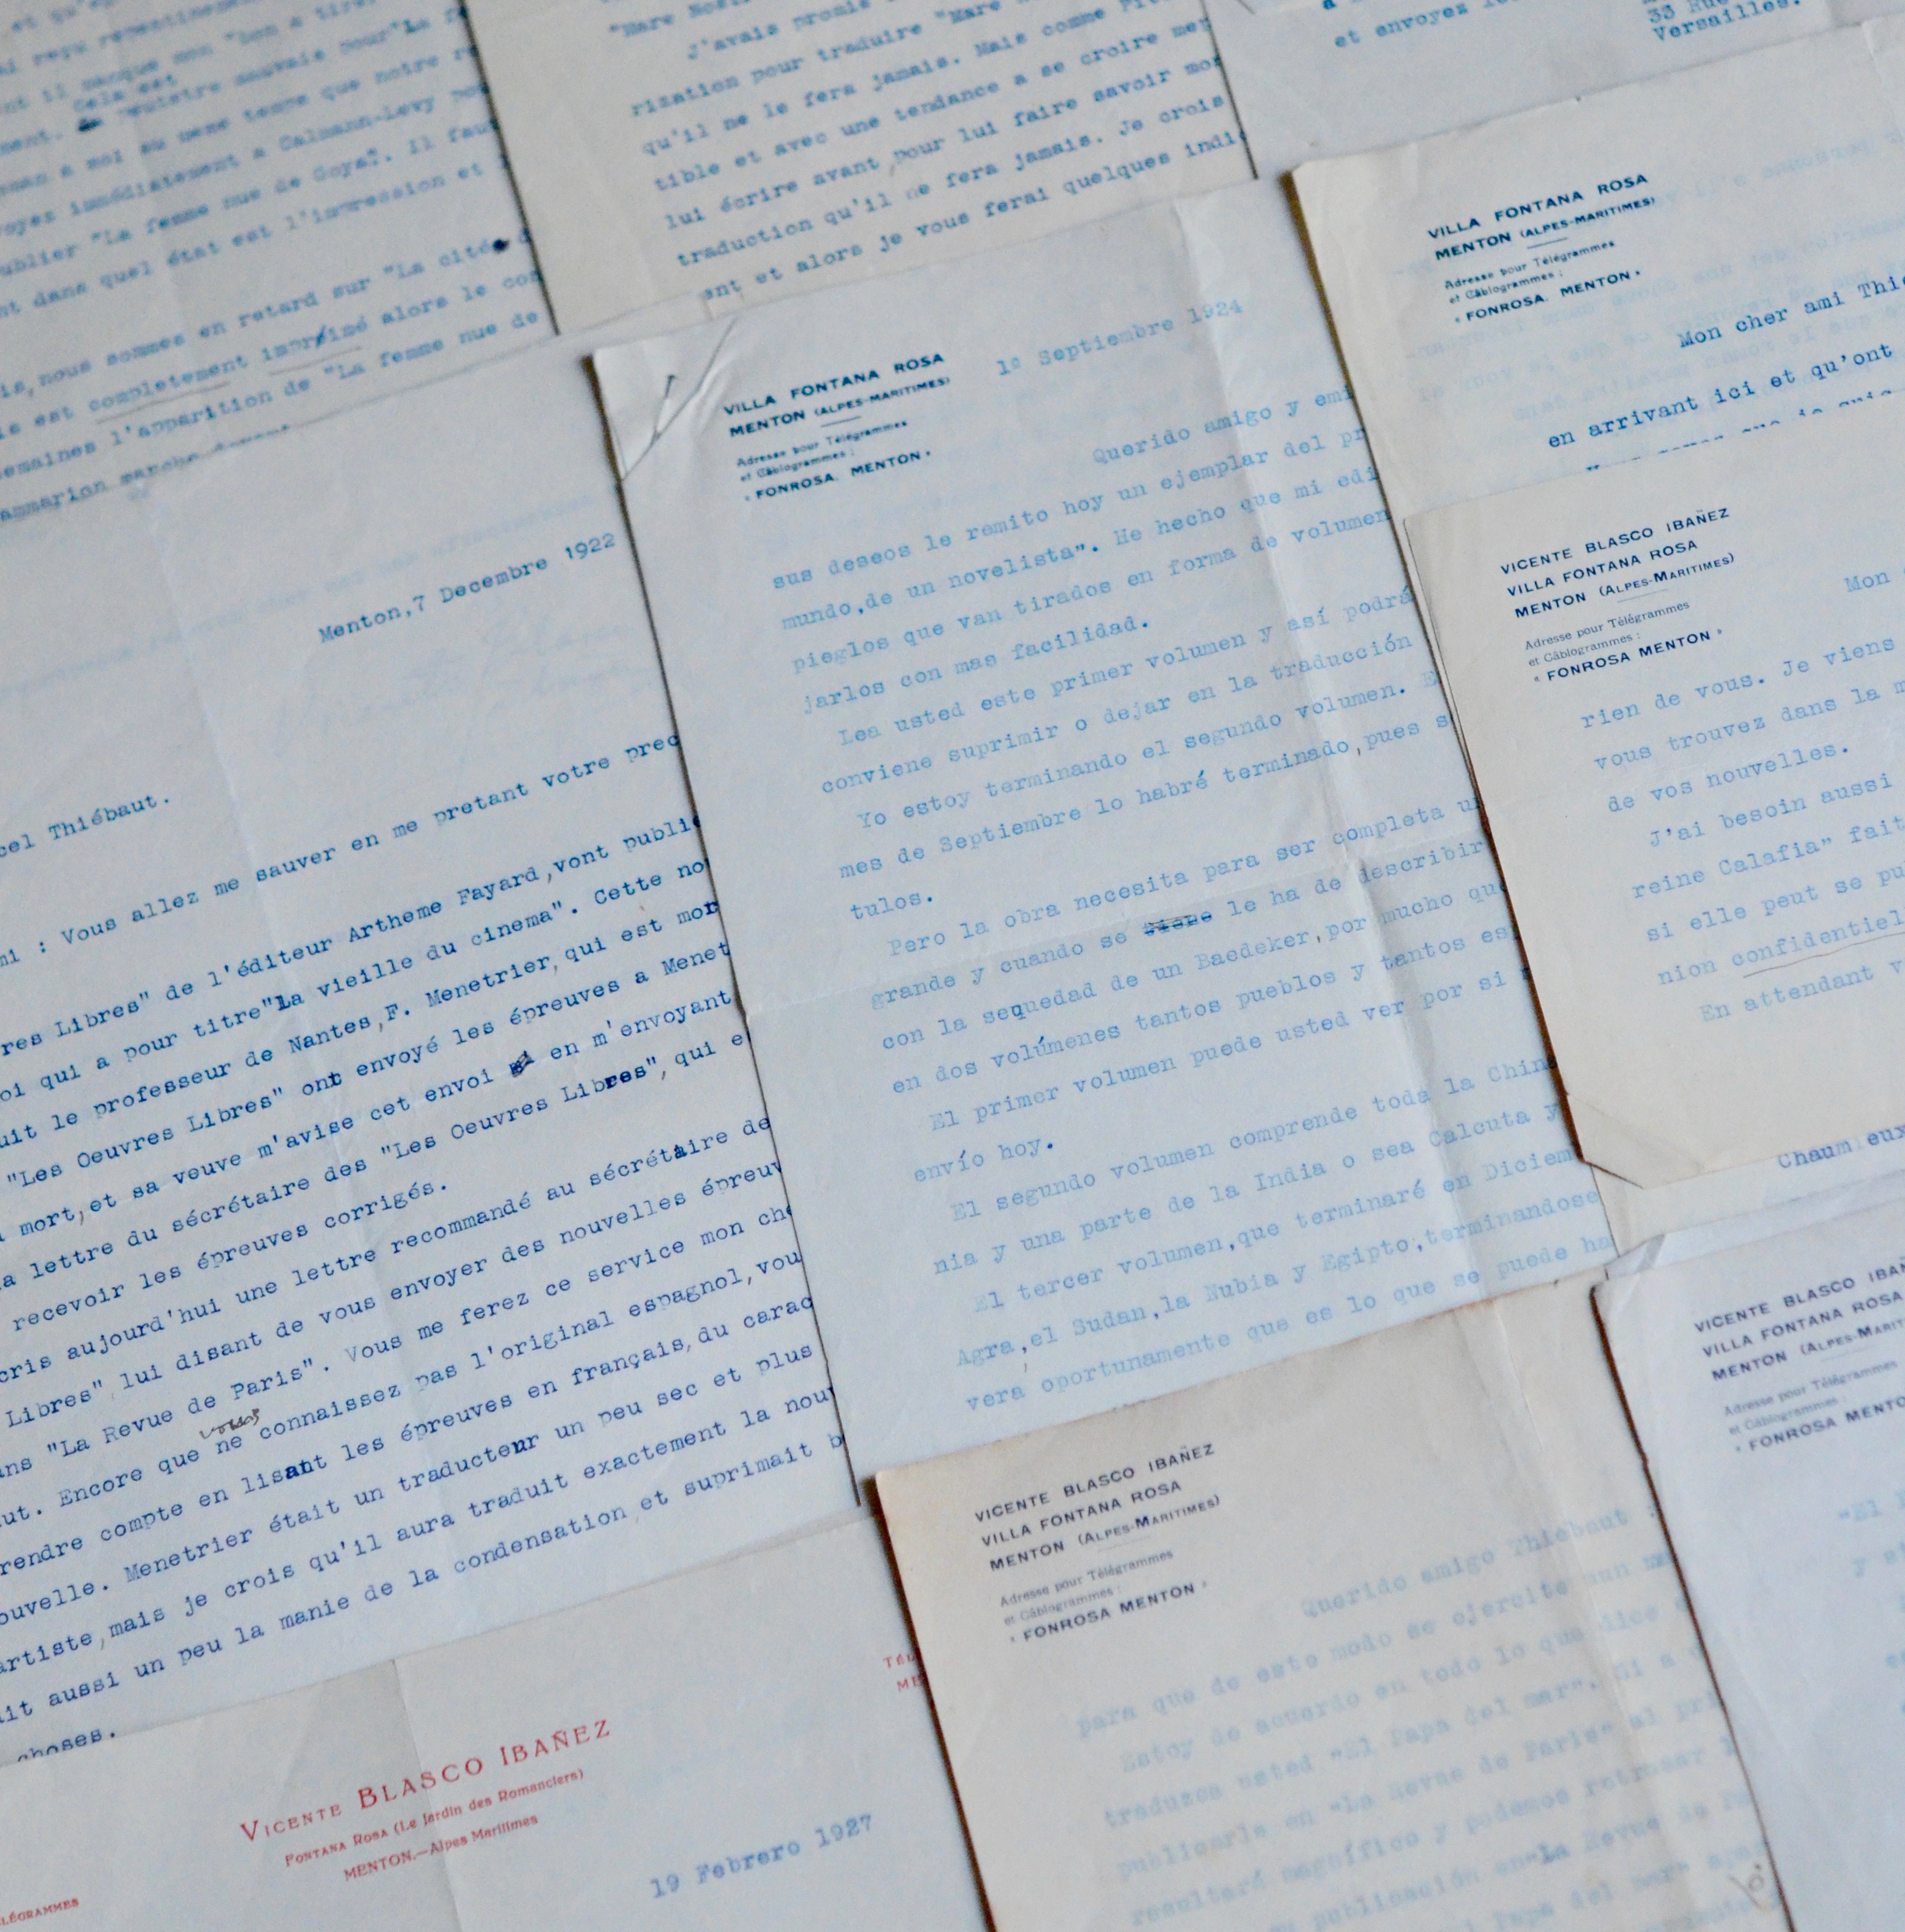 ai reçu
il manque mon "bon a tirer
Cela est
ment. peutetre mauvais pour "La f
a moi au meme temps que notre r
voyez immédiatement a Calmann-Levy pou
ublier "La femme nue de Goya". Il faut
nt dans quel état est l'impression et
is, nous sommes en retard sur "La cité d
est completement imprimé alors le com
emaines l'apparition de "La femme nue de
ammarion marche
"Mare Nost
J'avais promis
rization pour traduire "Mare
qu'il ne le fera jamais. Mais comme
tible et avec une tendance a se croire mer
lui écrire avant pour lui faire savoir mon
traduction qu'il ne fera jamais. Je crois
ent et alors je vous ferai quelques indi
et envoyez
33 Rue
Versailles.
VILLA FONTANA ROSA
MENTON (ALPES-MARITIMES)
Adresse pour Télégrammes
et Câblogrammes :
« FONROSA. MENTON »
Mon cher ami Thié
en arrivant ici et qu'ont
Menton,7 Decembre 1922
cel Thiébaut.
mi : Vous allez me sauver en me pretant votre prec
res Libres" de l'éditeur Artheme Fayard,vont publie
oi qui a pour titre"La vieille du cinema". Cette no
uit le professeur de Nantes,F. Menetrier,qui est mor
"Les Oeuvres Libres" ont envoyé les épreuves a Menet
mort,et sa veuve m'avise cet envoi en m'envoyant
a lettre du sécrétaire des "Les Oeuvres Libres", qui e
recevoir les épreuves corrigés.
cris aujourd'hui une lettre recommandé au sécrétaire de
Libres",lui disant de vous envoyer des nouvelles épreuv
ans "La Revue de Paris". Vous me ferez ce service mon che
vous
ut. Encore que ne connaissez pas l'original espagnol,vou
rendre compte en lisant les épreuves en français,du carac
ouvelle. Menetrier était un traducteur un peu sec et plus
artiste,mais je crois qu'il aura traduit exactement la nouv
ait aussi un peu la manie de la condensation et suprimait b
choses.
VILLA FONTANA ROSA
MENTON (ALPES-MARITIMES)
Adresse pour Télégrammes
et Câblogrammes :
« FONROSA. MENTON »
1º Septiembre 1924
Querido amigo y emi
sus deseos le remito hoy un ejemplar del pr
mundo,de un novelista". He hecho que mi edi
pieglos que van tirados en forma de volumen
jarlos con mas facilidad.
Lea usted este primer volumen y así podrá
conviene suprimir o dejar en la traducción
Yo estoy terminando el segundo volumen. E
mes de Septiembre lo habré terminado,pues s
tulos.
Pero la obra necesita para ser completa u
grande y cuando se tiene le ha de describir
con la sequedad de un Baedeker,por mucho que
en dos volúmenes tantos pueblos y tantos es
El primer volumen puede usted ver por si
envío hoy.
El segundo volumen comprende toda la China
nia y una parte de la India o sea Calcuta y
El tercer volumen,que terminaré en Diciem
Agra,el Sudan,la Nubia y Egipto,terminandose
vera oportunamente que es lo que se puede ha
VICENTE BLASCO IBAÑEZ
VILLA FONTANA ROSA
MENTON (ALPES-MARITIMES)
Adresse pour Télégrammes
et Câblogrammes :
« FONROSA MENTON »
Mon
rien de vous. Je viens
vous trouvez dans la m
de vos nouvelles.
J'ai besoin aussi
reine Calafia" fait
si elle peut se pu
nion confidentiel
En attendant v
VICENTE BLASCO IBAÑEZ
FONTANA ROSA (Le Jardin des Romanciers)
MENTON.—Alpes Maritimes
ÉLÉGRAMMES
TÉL
ME
19 Febrero 1927
VICENTE BLASCO IBAÑEZ
VILLA FONTANA ROSA
MENTON (ALPES-MARITIMES)
Adresse pour Télégrammes
et Câblogrammes :
« FONROSA MENTON »
Querido amigo Thiébaut :
para que de este modo se ejercite aun mas
Estoy de acuerdo en todo lo que dice
traduzca usted "El Papa del mar". Ni a
publicarla en "La Revue de Paris" al pri
resultará magnífico y podemos retrasar l
su publicación en"La Revue de Pa
Papa del mar"
Chaumieux
VICENTE BLASCO IBAÑ
VILLA FONTANA ROSA
MENTON (ALPES-MARIT
Adresse pour Télégrammes
et Câblogrammes :
« FONROSA MENTO
"El
y si